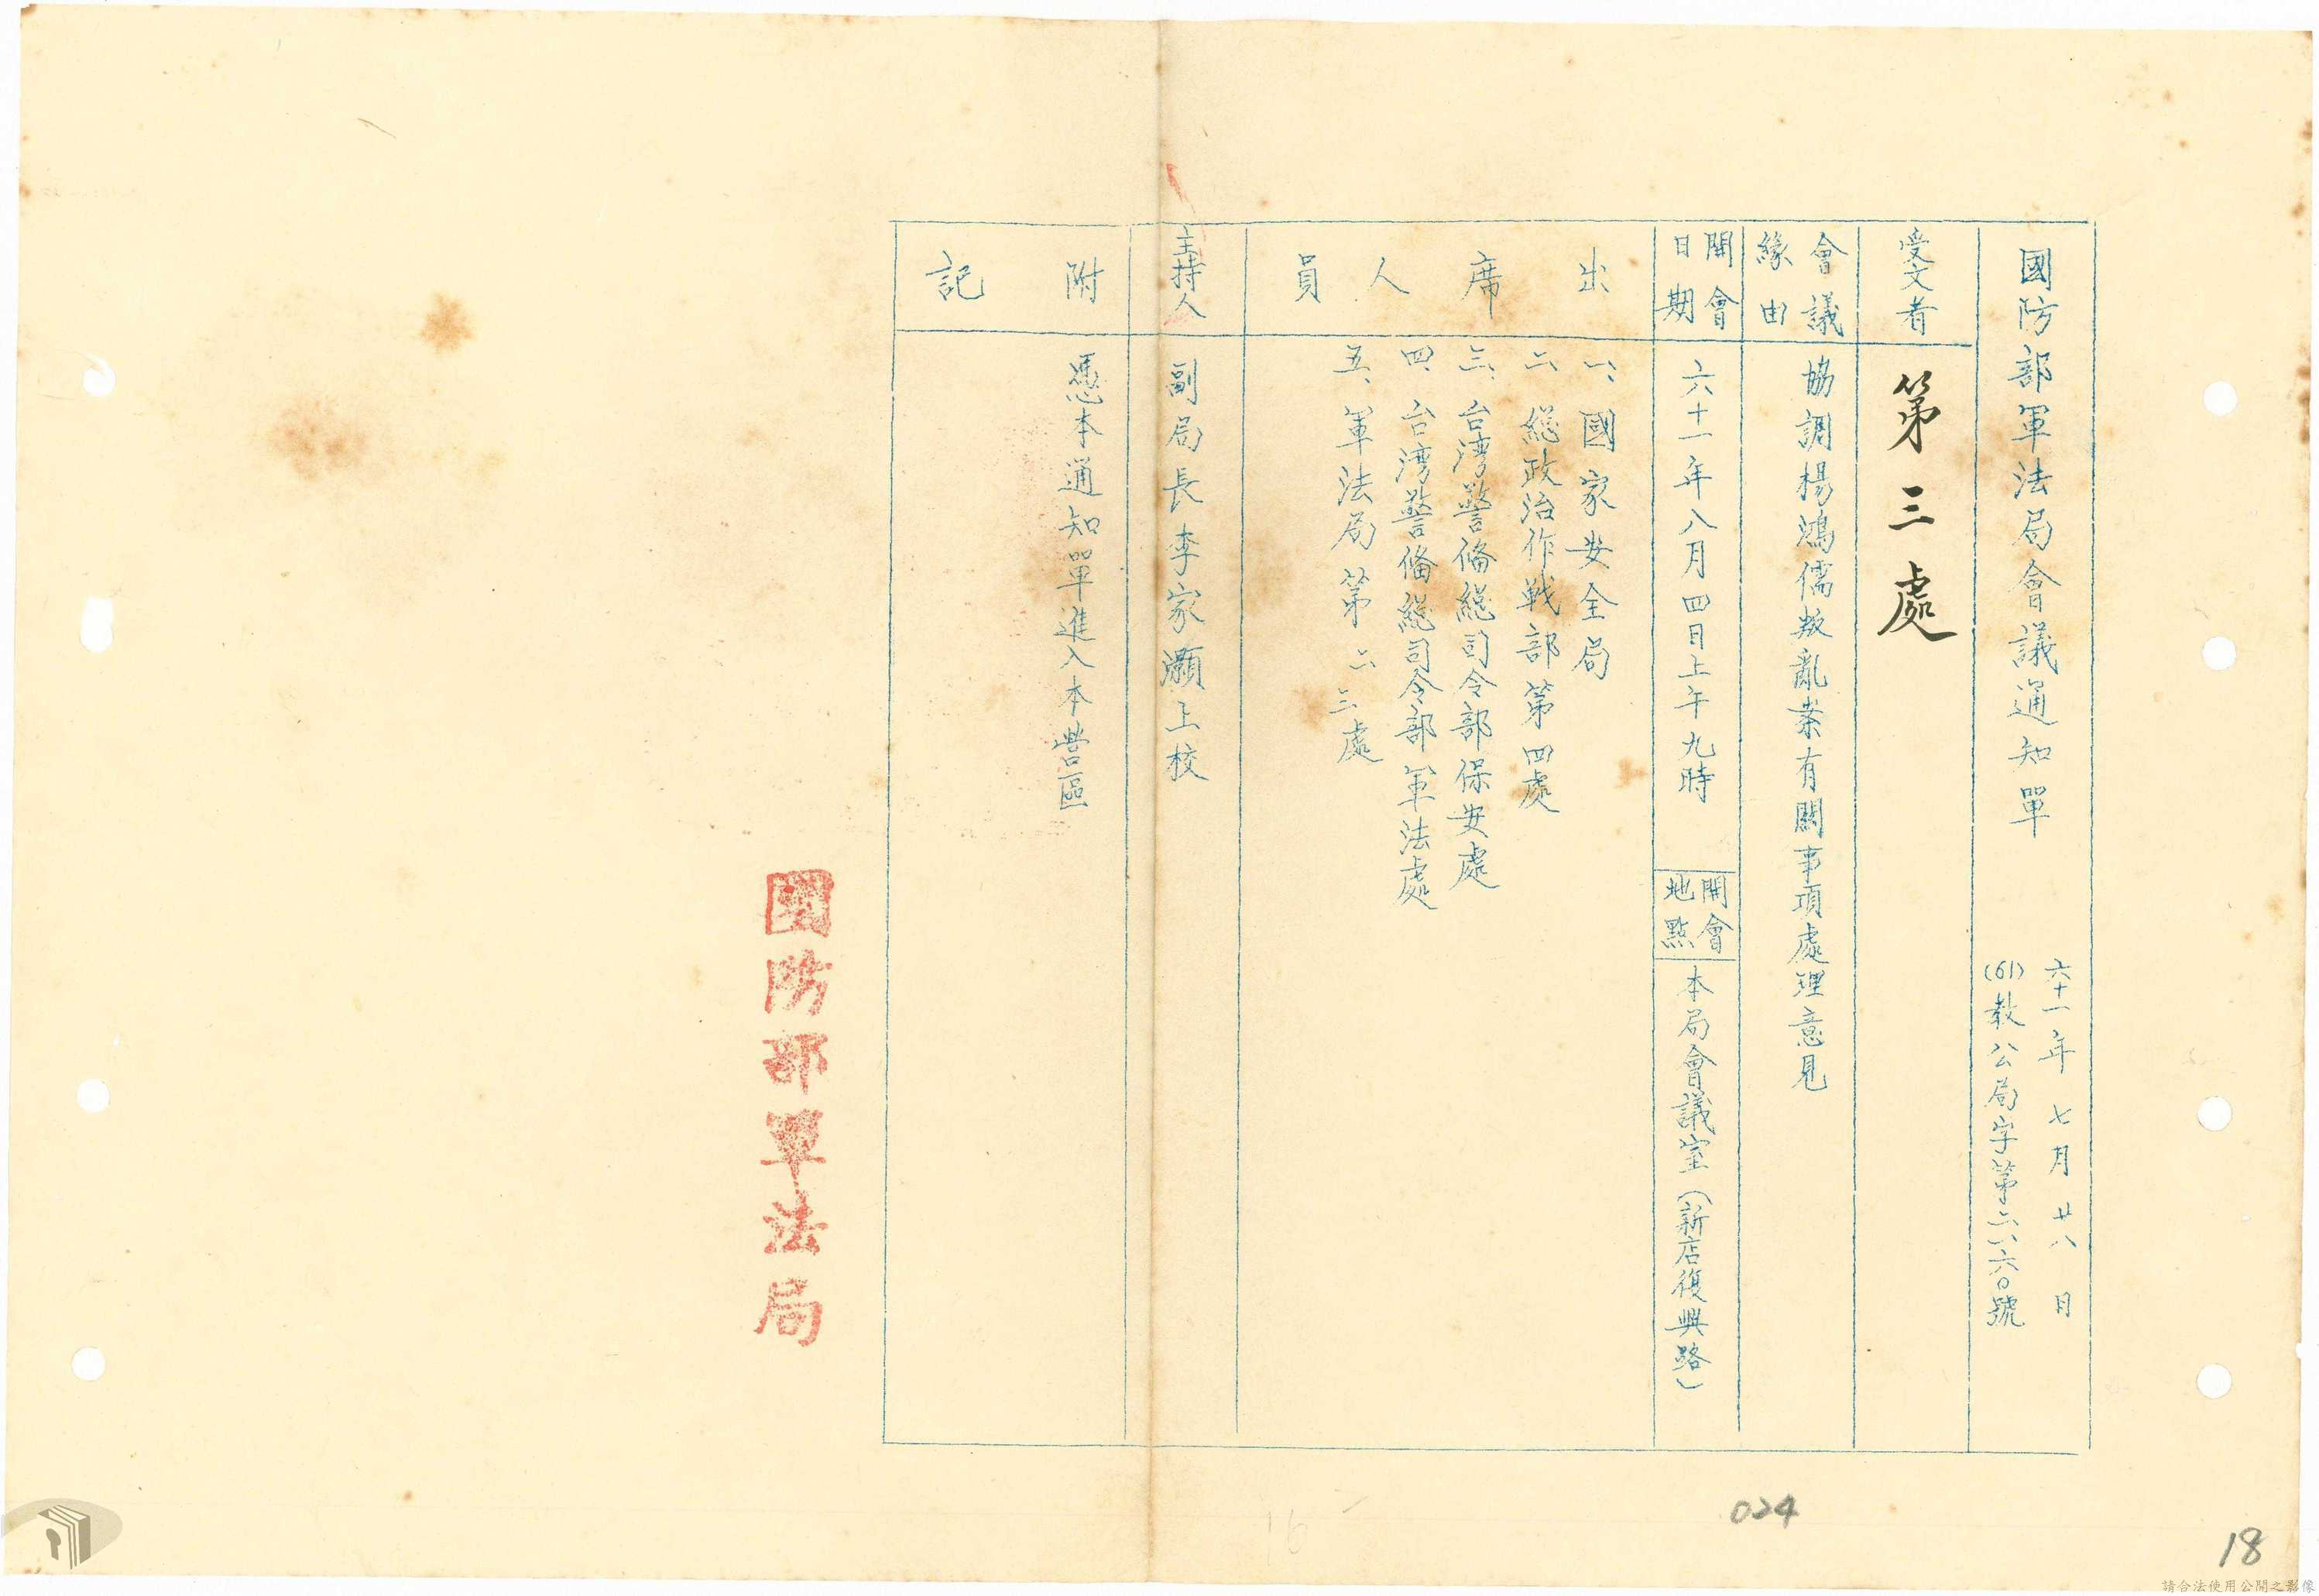 國防部軍法局會議通知單
六十一年 七月 廿八 日
(61)教公局字第二六六〇號
受文者
第三處
會議緣由
協調楊鴻儒叛亂案有關事項處理意見
開會日期
六十一年八月四日上午九時
開會地點
本局會議室(新店復興路)
出席人員
一、國家安全局
二、總政治作戰部第四處
三、台灣警備總司令部保安處
四、台灣警備總司令部軍法處
五、軍法局第二、三處
主持人
副局長李家灝上校
附記
憑本通知單進入本營區
國防部軍法局
024
16
18
請合法使用公開之影像